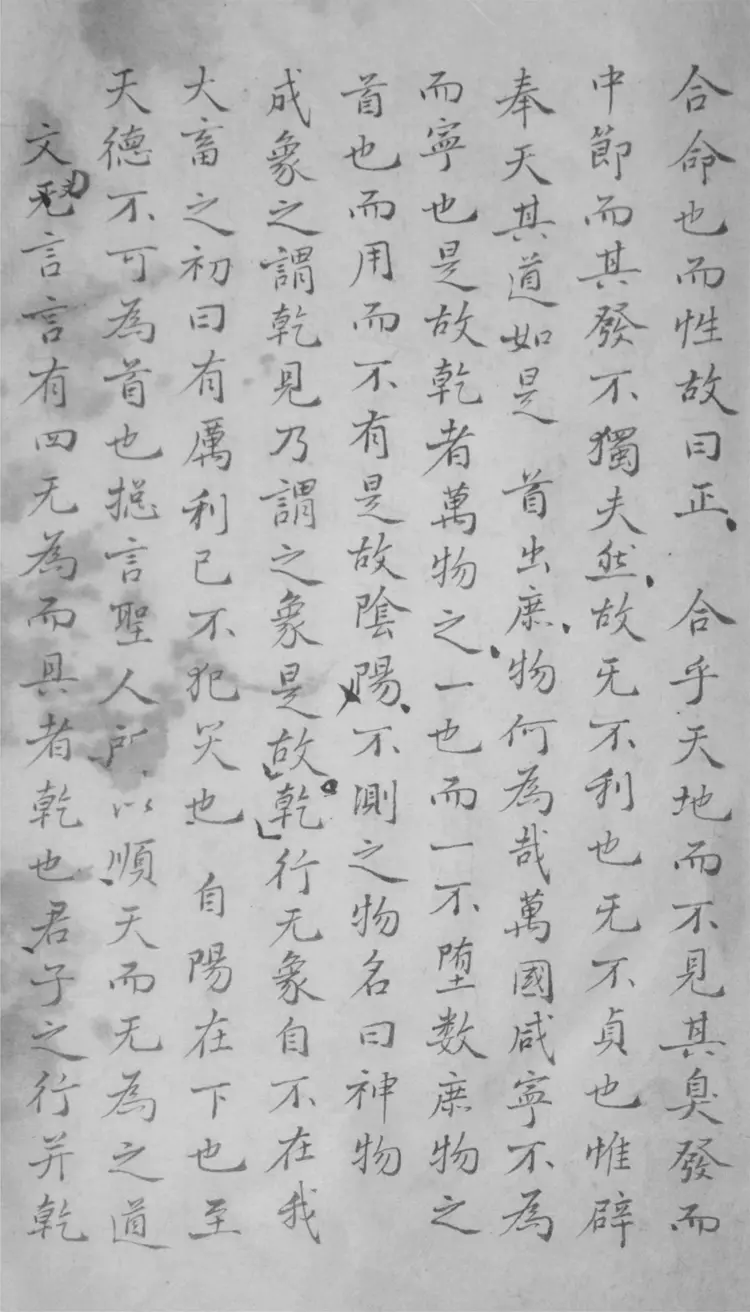 合命也而性故曰正 合乎天地而不見其臭發而
中節而其發不獨夫然故无不利也无不貞也惟辟
奉天其道如是 首出庶物何為哉萬國咸寧不為
而寧也是故乾者萬物之一也而一不墮数庶物之
首也而用而不有是故陰陽不測之物名曰神物
成象之謂乾見乃謂之象是故乾行无象自不在我
大畜之初曰有厲利已不犯災也 自陽在下也至
天德不可為首也摠言聖人所以順天而无為之道
文言言有四无為而具者乾也君子之行并乾